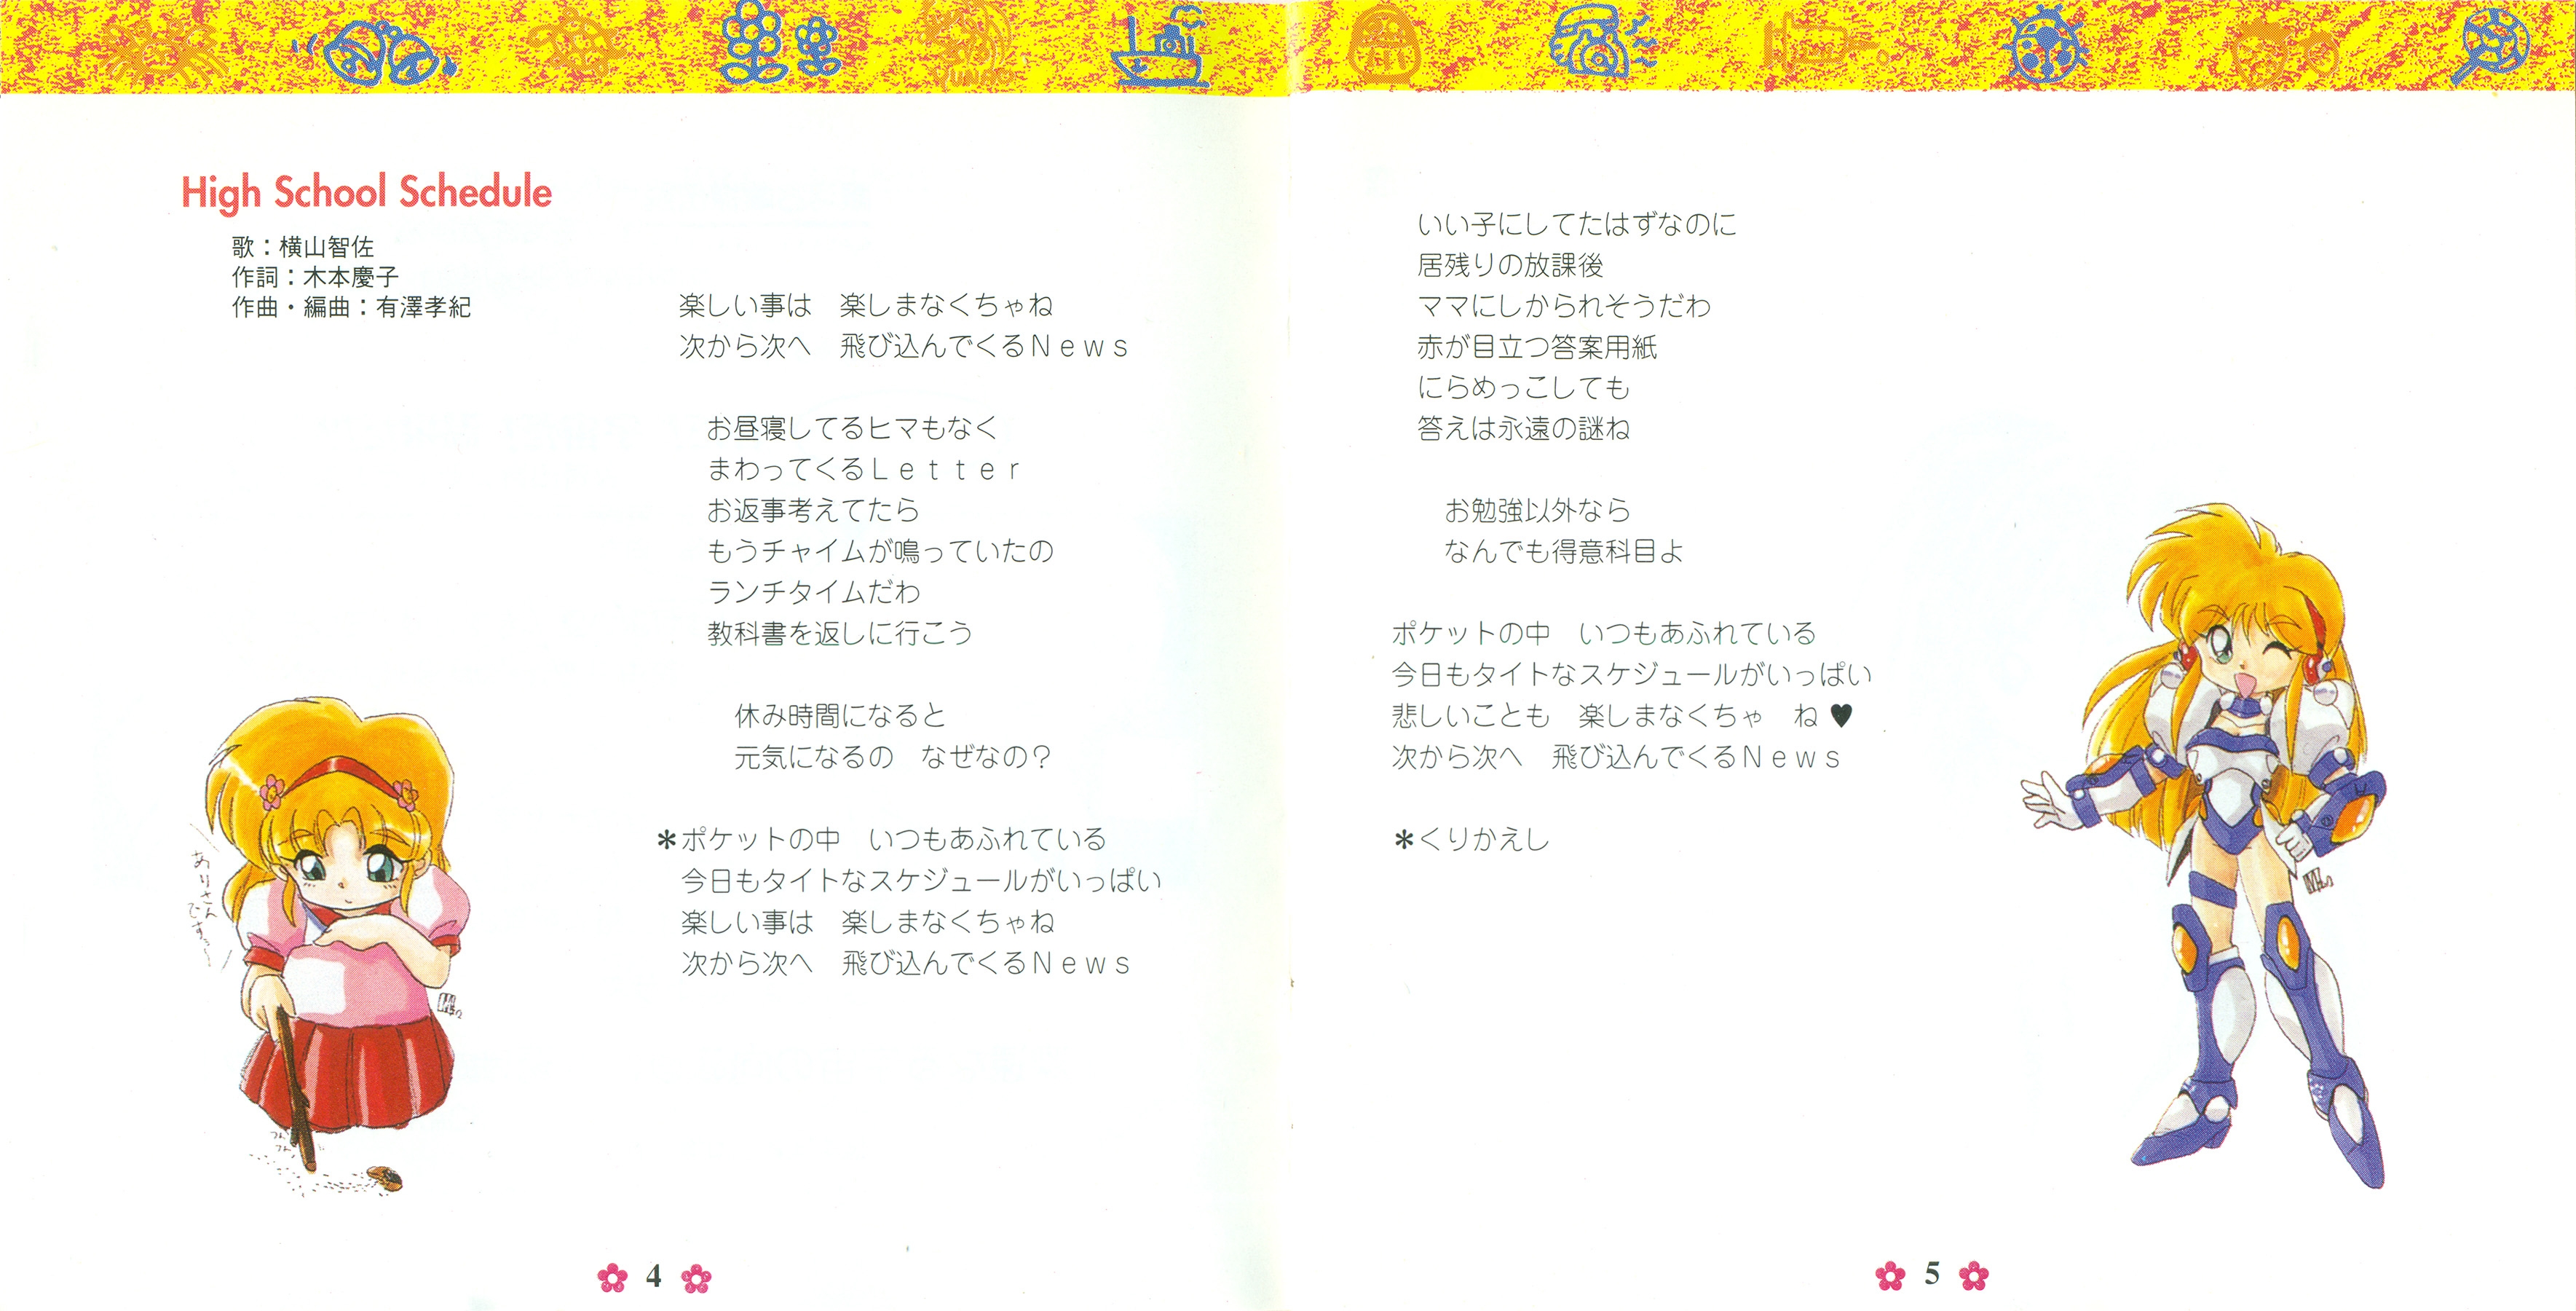 High School Schedule
歌：横山智佐
作詞：木本慶子
作曲・編曲：有澤孝紀
楽しい事は　楽しまなくちゃね
次から次へ　飛び込んでくるＮｅｗｓ
お昼寝してるヒマもなく
まわってくるＬｅｔｔｅｒ
お返事考えてたら
もうチャイムが鳴っていたの
ランチタイムだわ
教科書を返しに行こう
休み時間になると
元気になるの　なぜなの？
＊ポケットの中　いつもあふれている
今日もタイトなスケジュールがいっぱい
楽しい事は　楽しまなくちゃね
次から次へ　飛び込んでくるＮｅｗｓ
ありさん
ですぅ～
つん
つん
4
いい子にしてたはずなのに
居残りの放課後
ママにしかられそうだわ
赤が目立つ答案用紙
にらめっこしても
答えは永遠の謎ね
お勉強以外なら
なんでも得意科目よ
ポケットの中　いつもあふれている
今日もタイトなスケジュールがいっぱい
悲しいことも　楽しまなくちゃ　ね♥
次から次へ　飛び込んでくるＮｅｗｓ
＊くりかえし
5